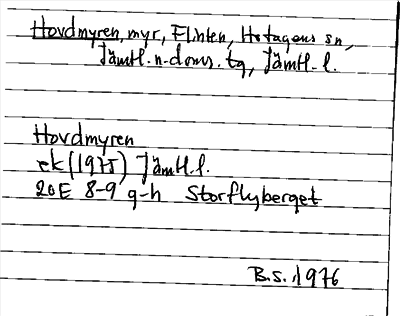 Hovdmyren, myr, Flinten, Hotagens sn,
Jämtl. n. doms. tg, Jämtl. l.
Hovdmyren
ek (1975) Jämtl. l.
20E 8-9 g-h Storflyberget
B.S. 1976